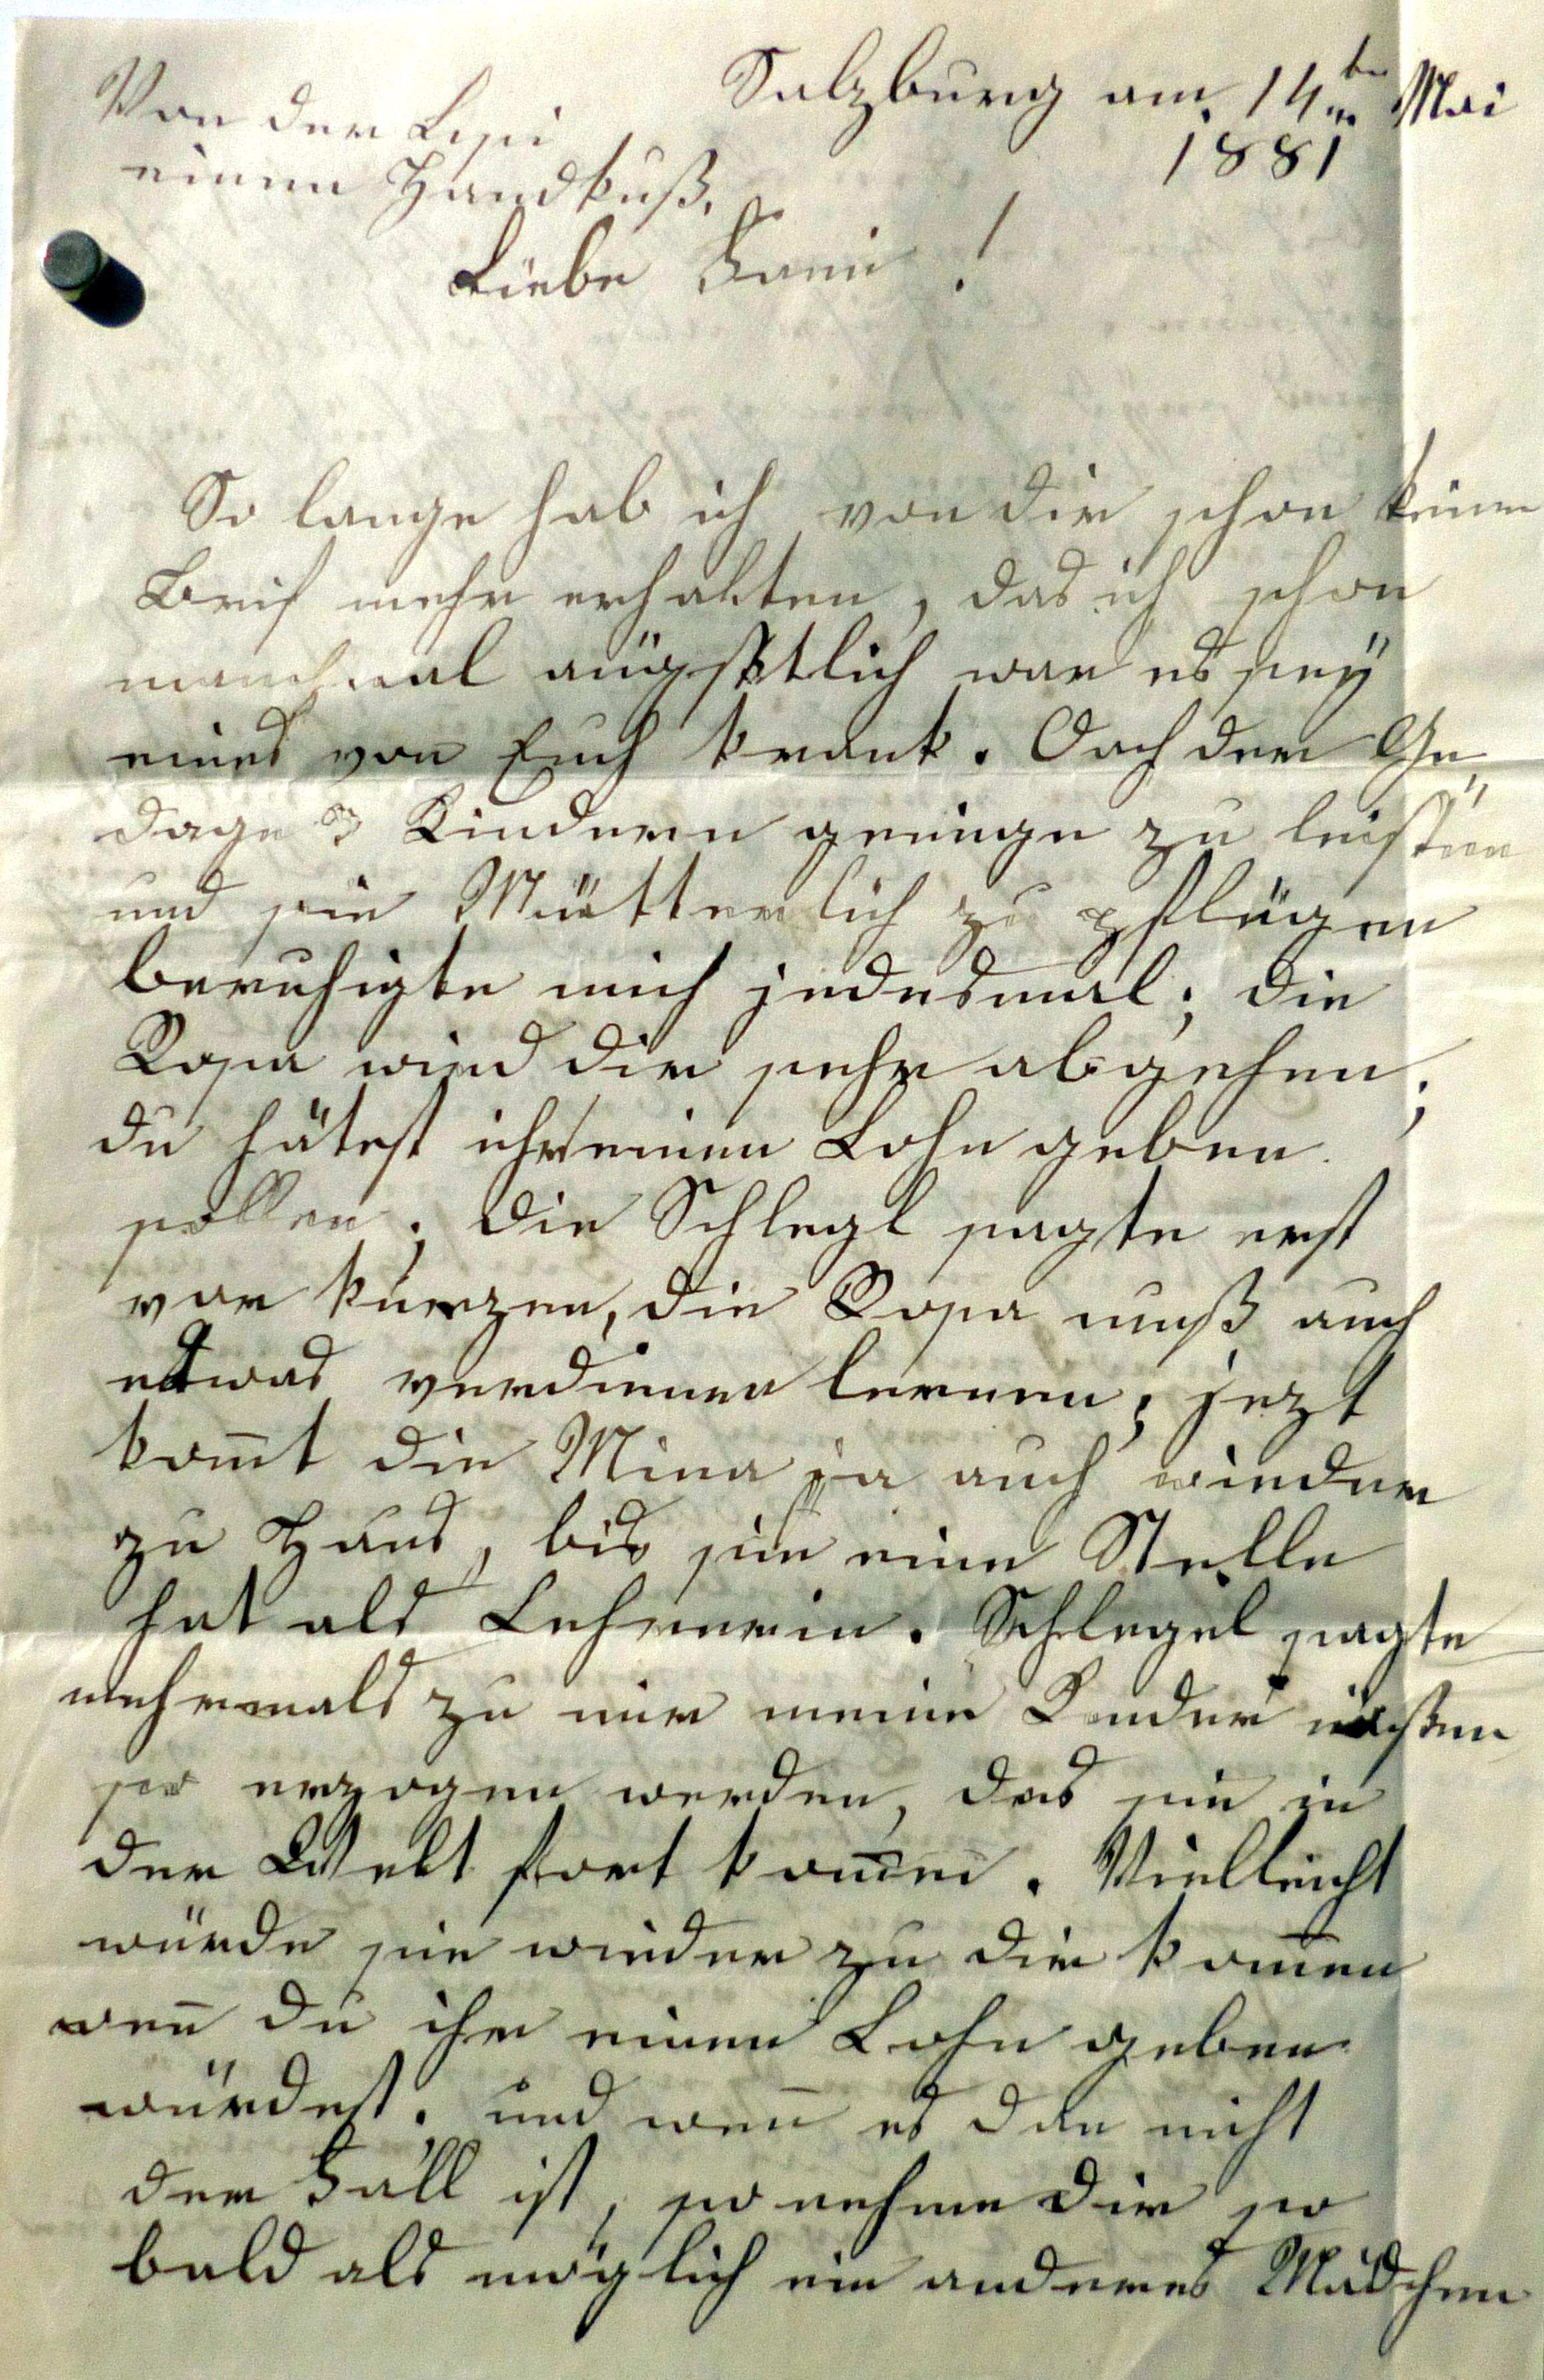 Salzburg am 14ten Mai
1881
Von der Resi
einen Handkuß.
Liebe Fani!
So lange hab ich von dir schon keinen
Brif mehr erhalten, das ich schon
manchmal ängstlich war es sey
eines von Euch krank. Doch der Ge„
danke 3 Kindern genüge zu leisten
und sie Mütterlich zu pflägen
beruhigte mich jedesmal; die
Rosa wird dir sehr abgehen;
du hätest ihr einen Lohn geben
sollen; die Schlegl sagte erst
vor kurzen, die Rosa muß auch
etwas verdienen lernen; jezt
kom̄t die Mina ja auch wieder
zu Haus, bis sie eine Stelle
hat als Lehrerin. Schlegel sagte
mehrmals zu mir meine Kinder müßen
so erzogen werden, das sie in
der Welt fort kom̄en. Vielleicht
würde sie wieder zu dir kom̄en
wen̄ du ihr einen Lohn geben
würdest. und wen̄ es dan nicht
der Fall ist, so nehme dir so
bald als möglich ein anderes Mädchen